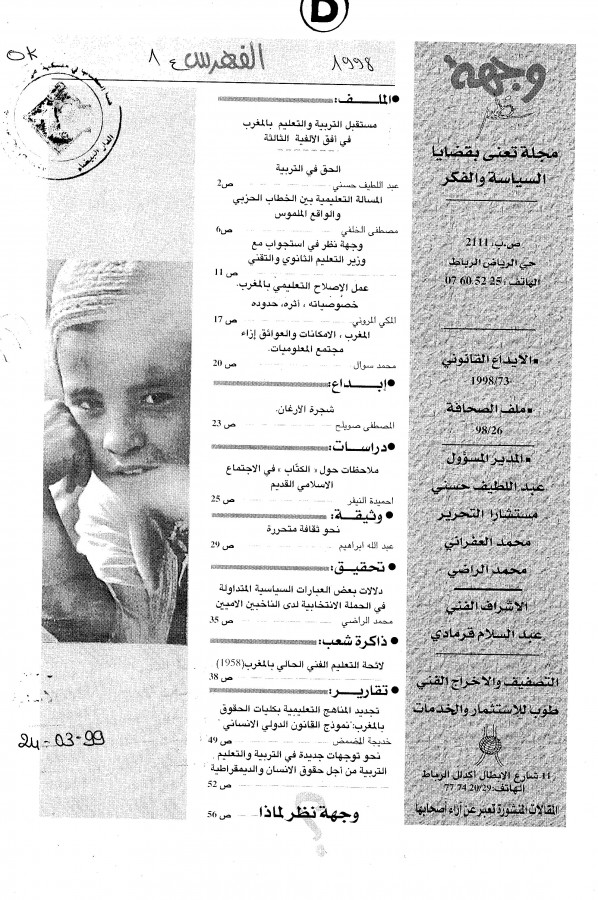 D
OK
الفهرس
1998
وجهة
نظر
مجلة تعنى بقضايا
السياسة والفكر
ص.ب: 2111
حي الرياض الرباط
الهاتف: 25 52 60 07
▪الايداع القانوني
1998/73
▪ملف الصحافة
98/26
▪المدير المسؤول
عبد اللطيف حسني
مستشارا التحرير
محمد العفراني
محمد الراضي
الاشراف الفني
عبد السلام قرمادي
التصفيف والاخراج الفني
طوب للاستثمار والخدمات
11 شارع الابطال أكدال الرباط
الهاتف: 20/29 74 77
المقالات المنشورة تعبر عن آراء أصحابها
●الملف:
مستقبل التربية والتعليم بالمغرب
في أفق الالفية الثالثة
الحق في التربية
عبد اللطيف حسني ص2
المسالة التعليمية بين الخطاب الحزبي
والواقع الملموس
مصطفى الخلفي ص6
وجهة نظر في استجواب مع
وزير التعليم الثانوي والتقني
ص 11
عمل الإصلاح التعليمي بالمغرب.
خصوصياته ، أثره، حدوده
المكي المروني ص 17
المغرب ، الامكانات والعوائق إزاء
مجتمع المعلوميات.
محمد سوال ص 20
●إبداع:
شجرة الارغان.
المصطفى صويلح ص 23
●دراسات:
ملاحظات حول « الكتّاب » في الاجتماع
الاسلامي القديم
احميدة النيفر ص 25
●وثيقة:
نحو ثقافة متحررة
عبد الله ابراهيم ص 29
●تحقيق:
دلالات بعض العبارات السياسية المتداولة
في الحملة الانتخابية لدى الناخبين الاميين
محمد الراضي ص 35
●ذاكرة شعب:
لائحة التعليم الفني الحالي بالمغرب(1958)
ص 38
●تقارير:
تجديد المناهج التعليمية بكليات الحقوق
بالمغرب:"نموذج القانون الدولي الانساني"
خديجة المضمض ص 49
نحو توجهات جديدة في التربية والتعليم
التربية من أجل حقوق الانسان والديمقراطية
ص 52
وجهة نظر لماذا ص 56
؟
24-03-99